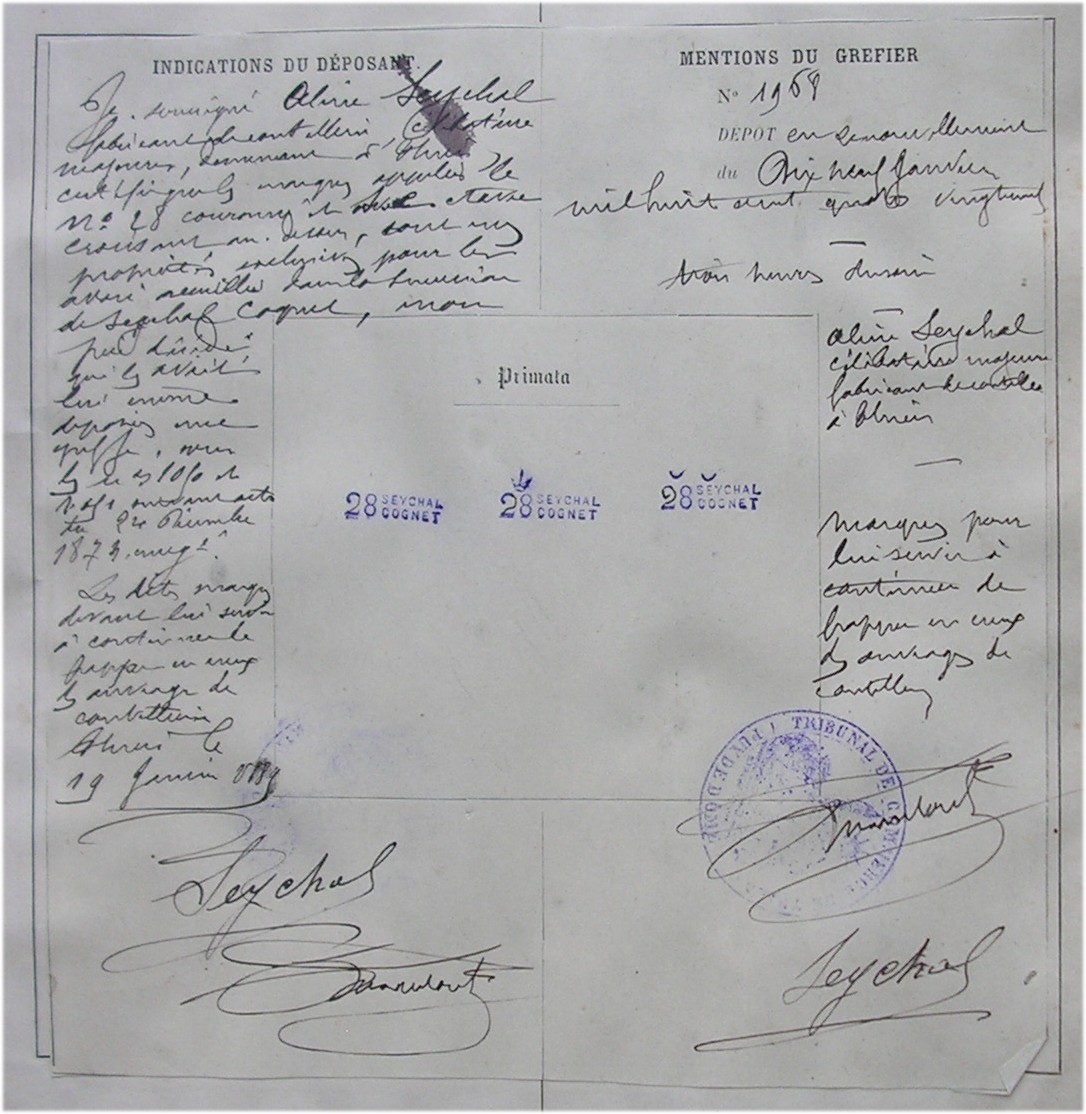 INDICATIONS DU DÉPOSANT.
Je soussigné Aline Seychal
fabricant de coutellerie, célibataire
majeure, demeurant à Thiers
certifie que les marques appelées le
N° 28 couronné et avec
croissant au dessus, sont ma
propriété exclusive pour les
avoir recueillies dans la succession
de Seychal Cognet, mon
père décédé
qui les avait
lui même
déposées au
greffe, sous
les nos 1050 et
1051 suivant acte
du 24 Décembre
1873 enregé.
Les dites marques
devant lui servir
à continuer de
frapper en creux
les ouvrages de
coutellerie
Thiers le
19 Janvier
Seychal
MENTIONS DU GREFIER
N° 1968
DEPOT en renouvellement
du Dix neuf Janvier
mil huit cent quatre vingt
trois heures du soir
Aline Seychal
célibataire majeure
fabricant de coutellerie
à Thiers
Marques pour
lui servir à
continuer de
frapper en creux
les ouvrages de
coutellerie
Primata
28 SEYCHAL
COGNET
28 SEYCHAL
COGNET
28 SEYCHAL
COGNET
TRIBUNAL DE COMMERCE
PUY DE DOME
Seychal